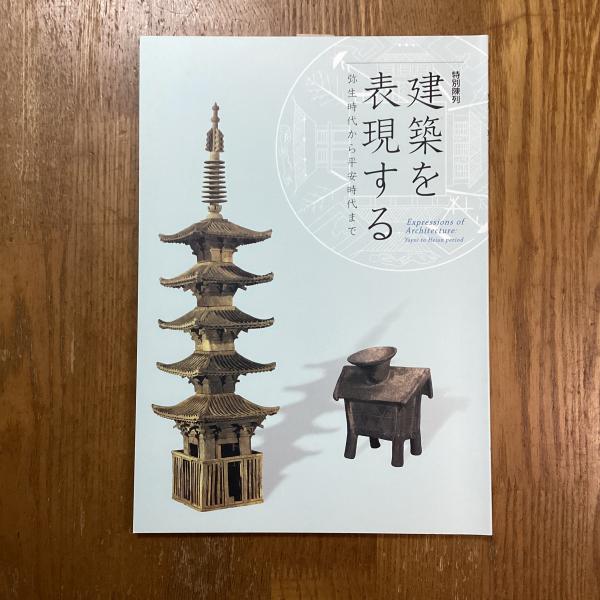 特別陳列
建築を
表現する
弥生時代から平安時代まで
Expressions of
Architecture:
Yayoi to Heian period